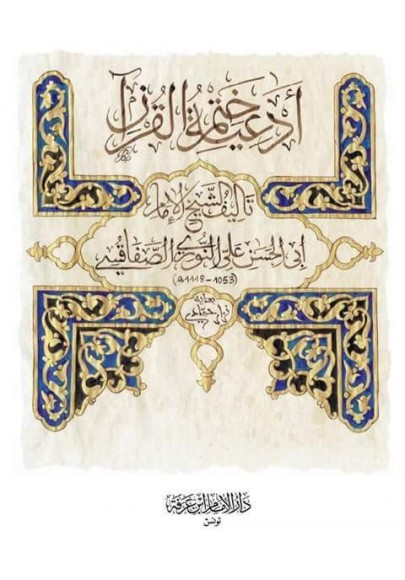 أدعية ختمة القرآن
تأليف الشيخ الإمام
أبي الحسن علي النوري الصفاقسي
(1053 - 1118هـ)
بعناية
دار الإمام ابن عرفة
تونس